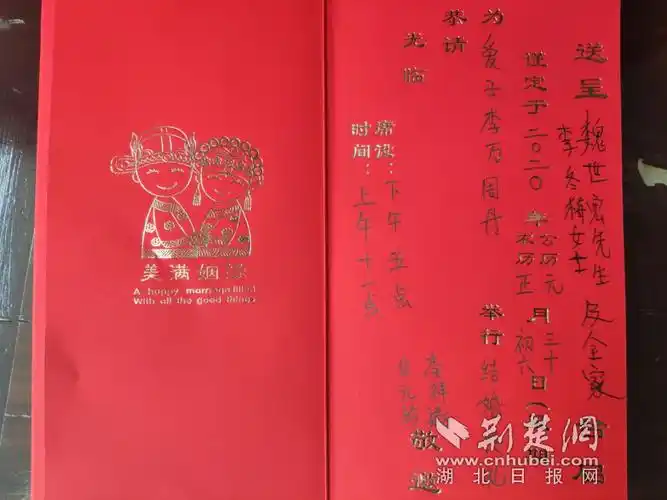 美满姻缘
A happy marriage filled
With all the good things
送呈 魏世宏先生 李冬梅女士 及全家 台启
谨定于二〇二〇年 公历元月三十日 农历正月初六日(星期
为 爱子李万 周丹 举行 结婚典礼
恭请
光临
敬邀
席设:下午五点
时间:上午十一点
荆楚网
www.cnhubei.com
湖北日报网